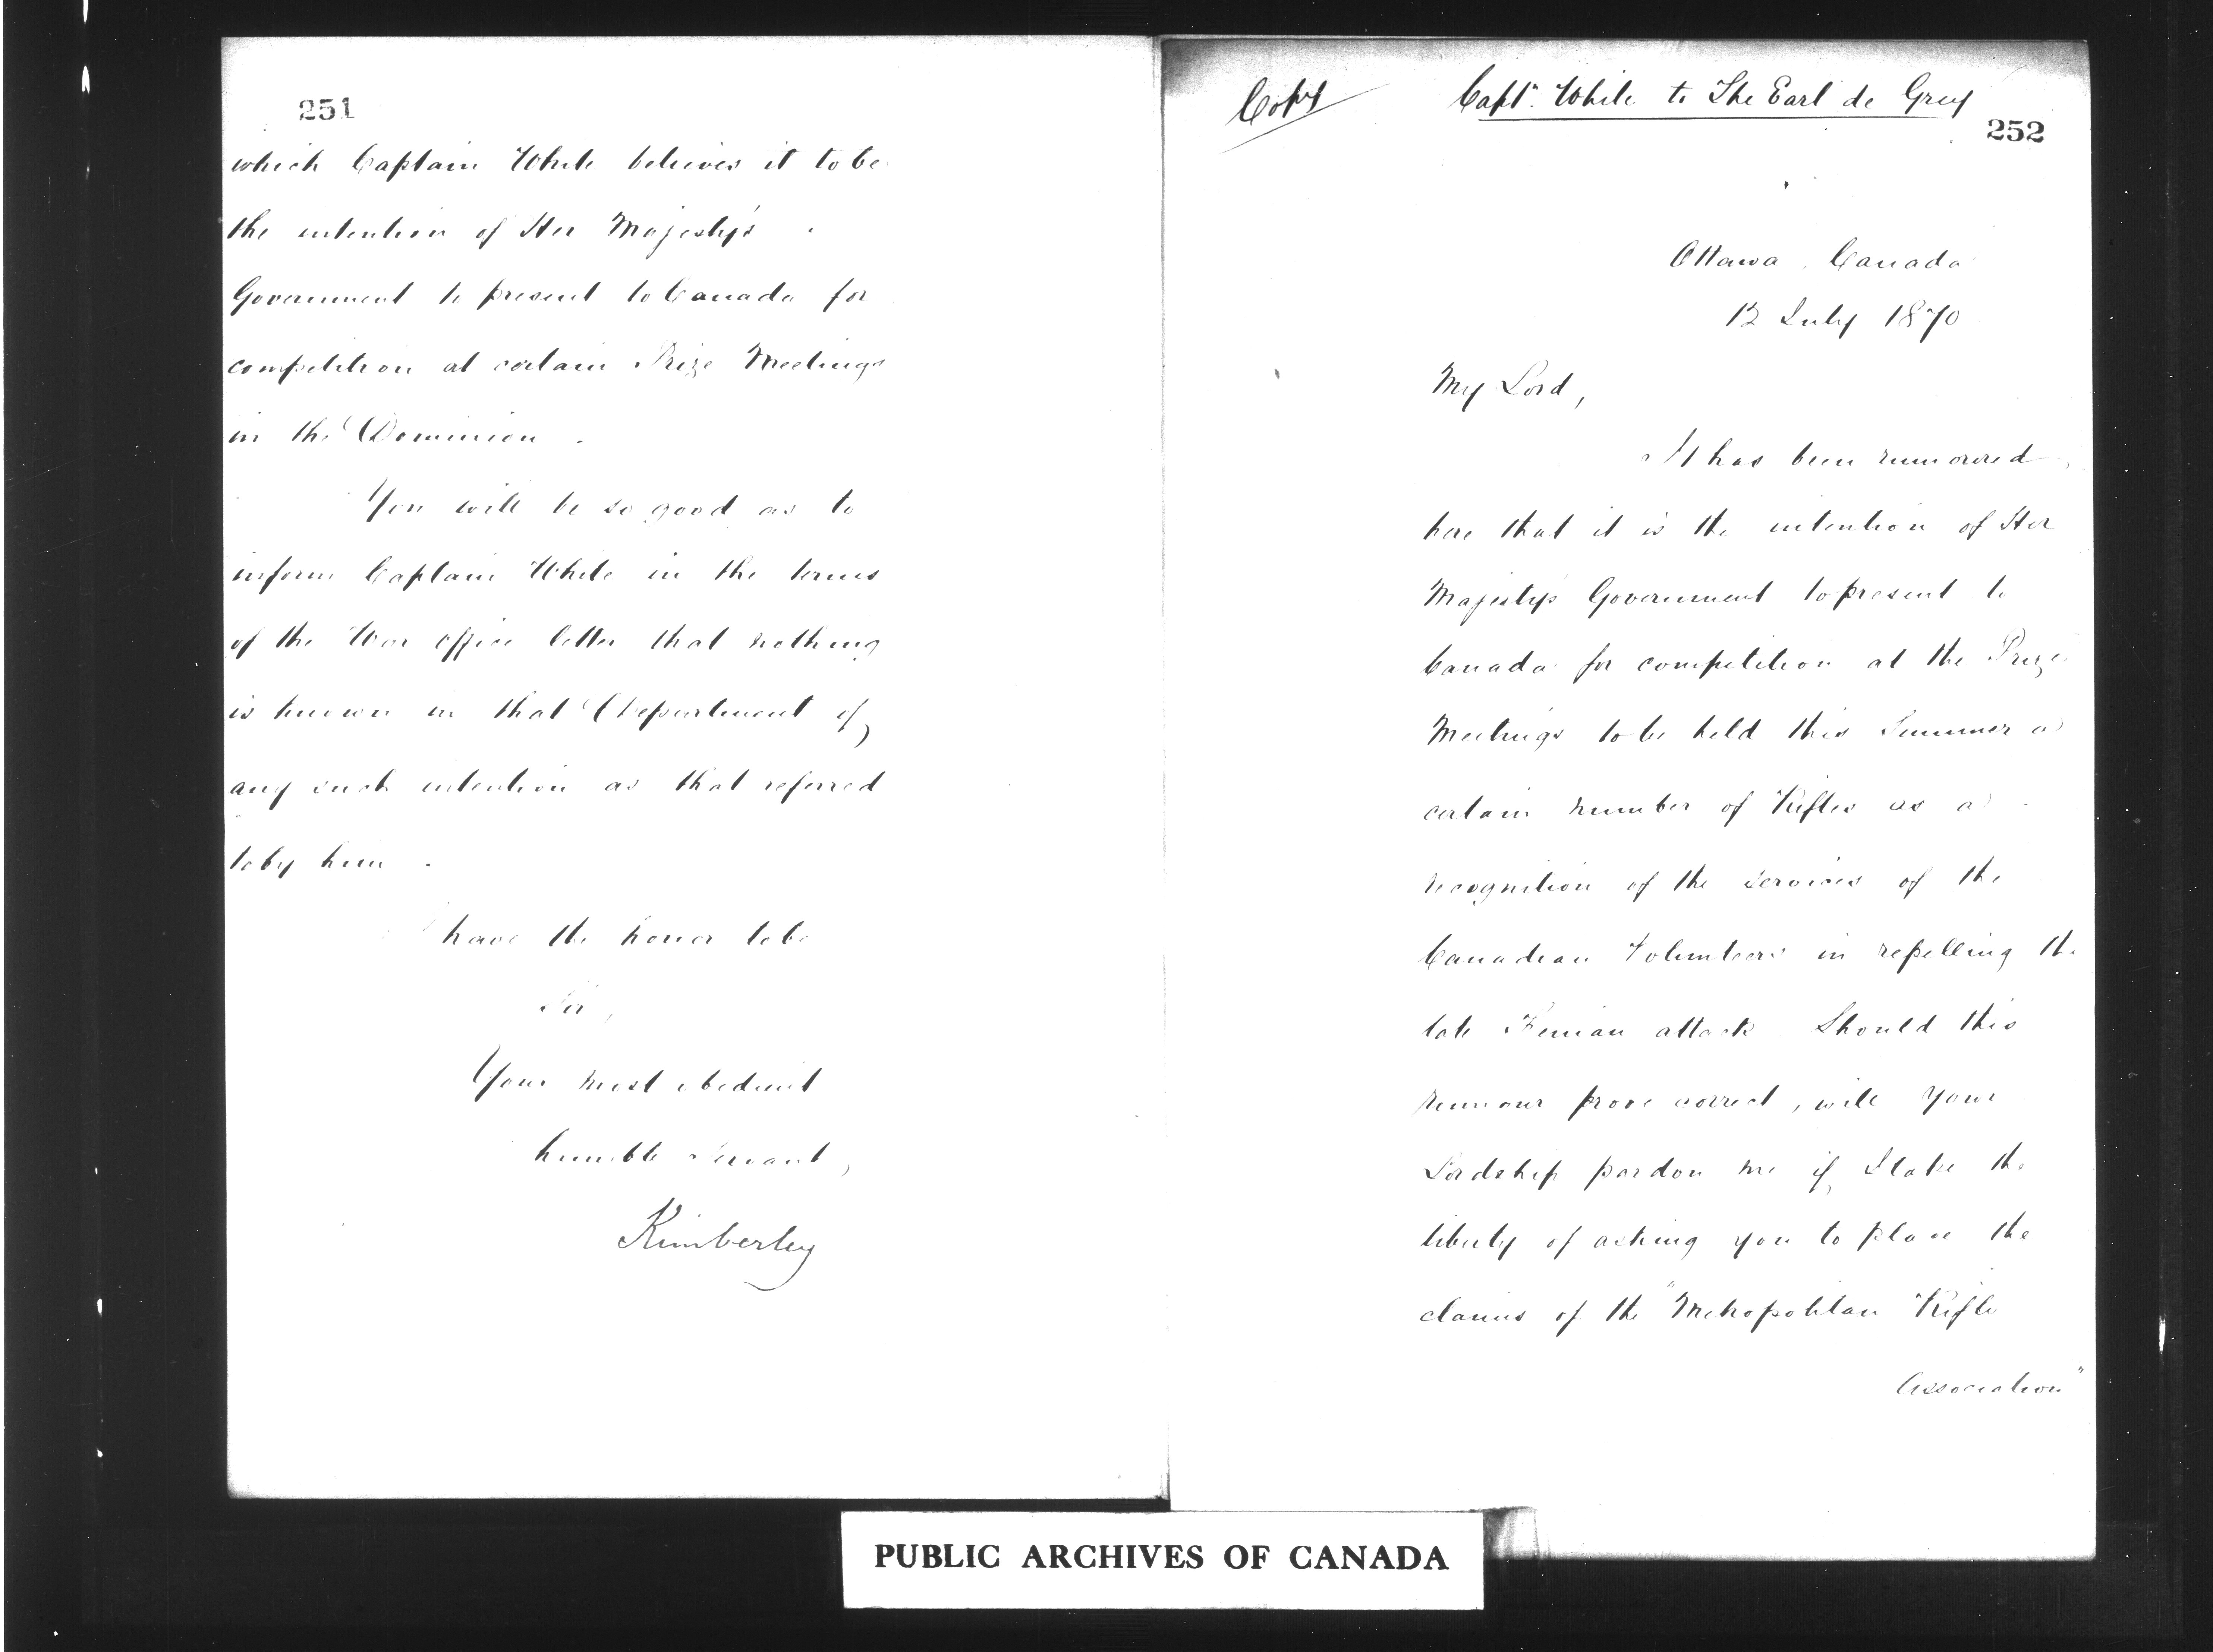 251
which Captain White believes it to be
the intention of Her Majesty's
Government to present to Canada for
competition at certain Prize Meetings
in the Dominion.
You will be so good as to
inform Captain White in the terms
of the War Office letter that nothing
is known in that Department of
any such intention as that referred
to by him.
I have the honor to be
Sir,
Your most obedient
humble servant,
Kimberley
Copy
Captn. White to The Earl de Grey
252
Ottawa, Canada
12 July 1870
My Lord,
It has been rumoured
here that it is the intention of Her
Majesty's Government to present to
Canada for competition at the Prize
Meetings to be held this Summer a
certain number of Rifles as a
recognition of the services of the
Canadian Volunteers in repelling the
late Fenian attack. Should this
rumour prove correct, will your
Lordship pardon me if I take the
liberty of asking you to place the
claims of the "Metropolitan Rifle
Association"
PUBLIC ARCHIVES OF CANADA